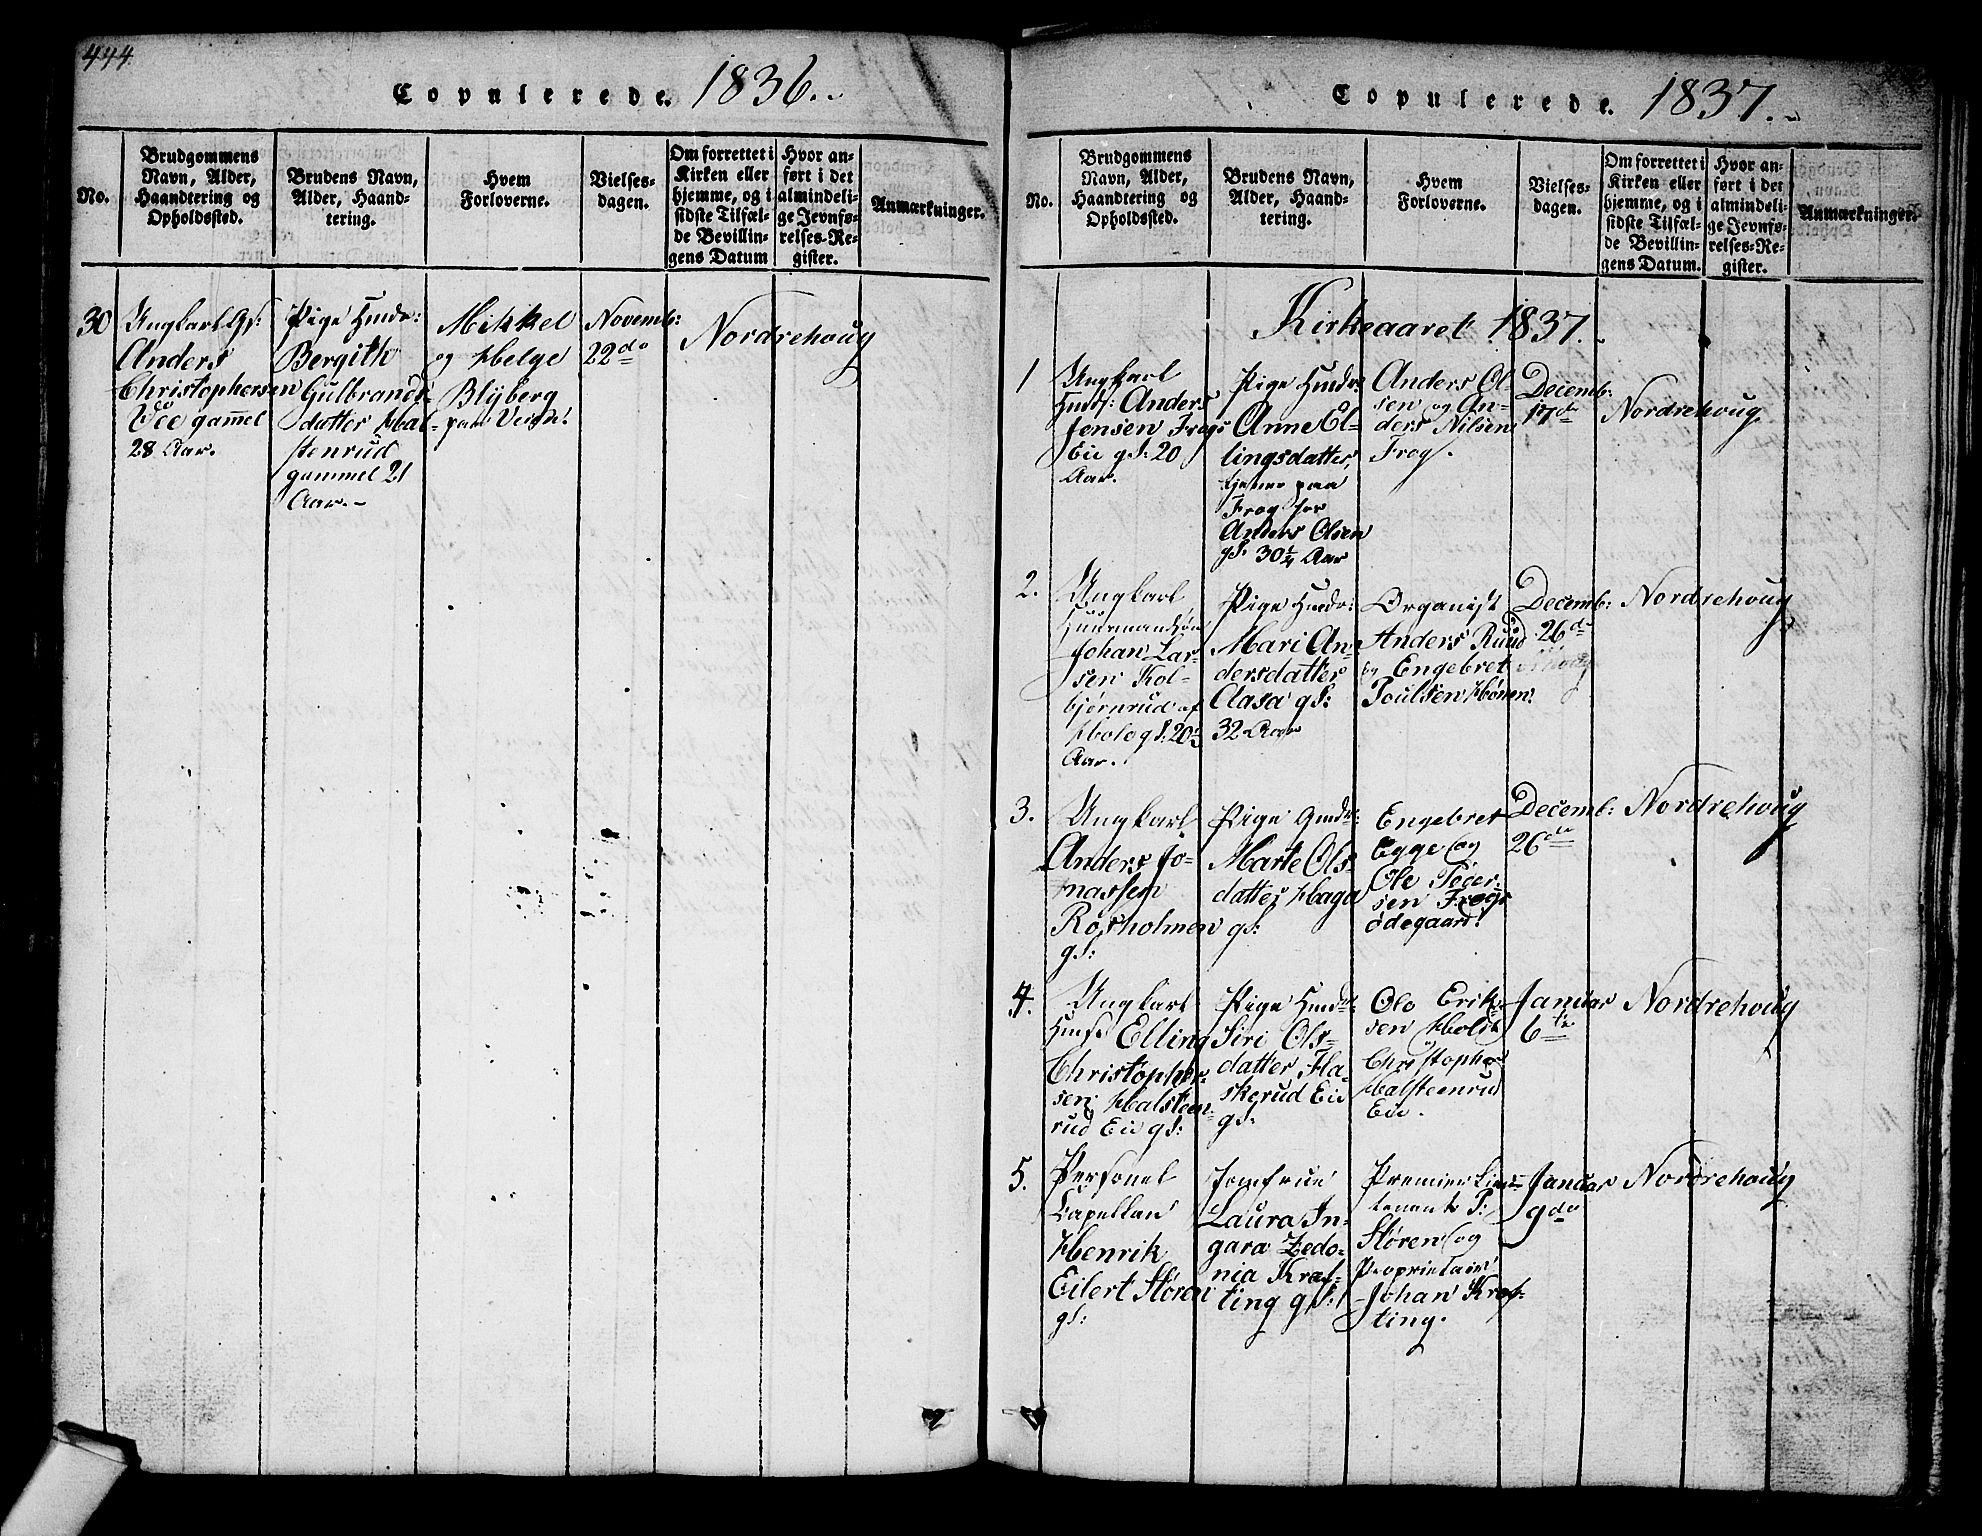 444
Copulerede. 1836.
No.
Brudgommens
Navn, Alder,
Haandtering og
Opholdssted.
Brudens Navn,
Alder, Haand-
tering.
Hvem
Forloverne.
Vielses-
dagen.
Om forrettet i
Kirken eller
hjemme, og i
sidste Tilfæl-
de Bevillin-
gens Datum
Hvor an-
ført i det
almindeli-
ge Jevnfø-
relses-Re-
gister.
Anmærkninger.
30
Ungkarl Gs:
Anders
Christophersen
Vee gammel
28 Aar.
Pige Huusdr:
Bergith
Gulbrands
datter Hal-
stenrud
gammel 21
Aar.-
Mikkel
og Helge
Blyberg
paa
Novemb:
22de
Nordrehoug
Copulerede. 1837.
No.
Brudgommens
Navn, Alder,
Haandtering og
Opholdssted.
Brudens Navn,
Alder, Haand-
tering.
Hvem
Forloverne.
Vielses-
dagen.
Om forrettet i
Kirken eller
hjemme, og i
sidste Tilfæl-
de Bevillin-
gens Datum.
Hvor an-
ført i det
almindeli-
ge Jevnfø-
relses-Re-
gister.
Anmærkninger.
Kirkeaaret 1837.
1
Ungkarl
Anders
Jensen Frogs
Eie gl: 20
Aar.
Pige
Anne El-
lingsdatter,
tjener paa
Frog hos
Anders Olsen
gl: 30 1/4 Aar
Anders Ol
sen og An-
ders Nilsen
Frog.
Decemb:
17de
Nordrehoug
2.
Ungkarl
Huusmandsøn
Johan Lar-
sen Kol-
bjørnrud af
Hole gl: 20 1/2
Aar.
Pige
Mari An-
dersdatter
Aasa gl:
32 Aar
Organist
Anders Ruud
og Engebret
Poulsen Hønen.
Decemb:
26de
Nordrehoug
3.
Ungkarl
Anders Jo-
nassen
Rosholmen
gl:
Pige
Marte Ols-
datter Haga
gl:
Engebret
Egge og
Ole Peder-
sen Frogs
ødegaard.
Decemb:
26de
Nordrehoug
4.
Ungkarl
Elling
Christopher-
sen Halsteen-
rud Eie gl:
Pige
Siri Ols-
datter, Fla-
skerud Eie
gl:
Ole Erik-
sen
Christopher
Halsteenrud
Eie.
Januar
6te
Nordrehoug
5.
Personel
Capellan
Henrik
Eilert Støren
gl:
Jomfrue
Laura In-
gara Zedo-
nia Kraf-
ting gl:
Premier Lieu-
tenant P:
Støren og
Proprietair
Johan Kraf-
ting.
Januar
9de
Nordrehoug